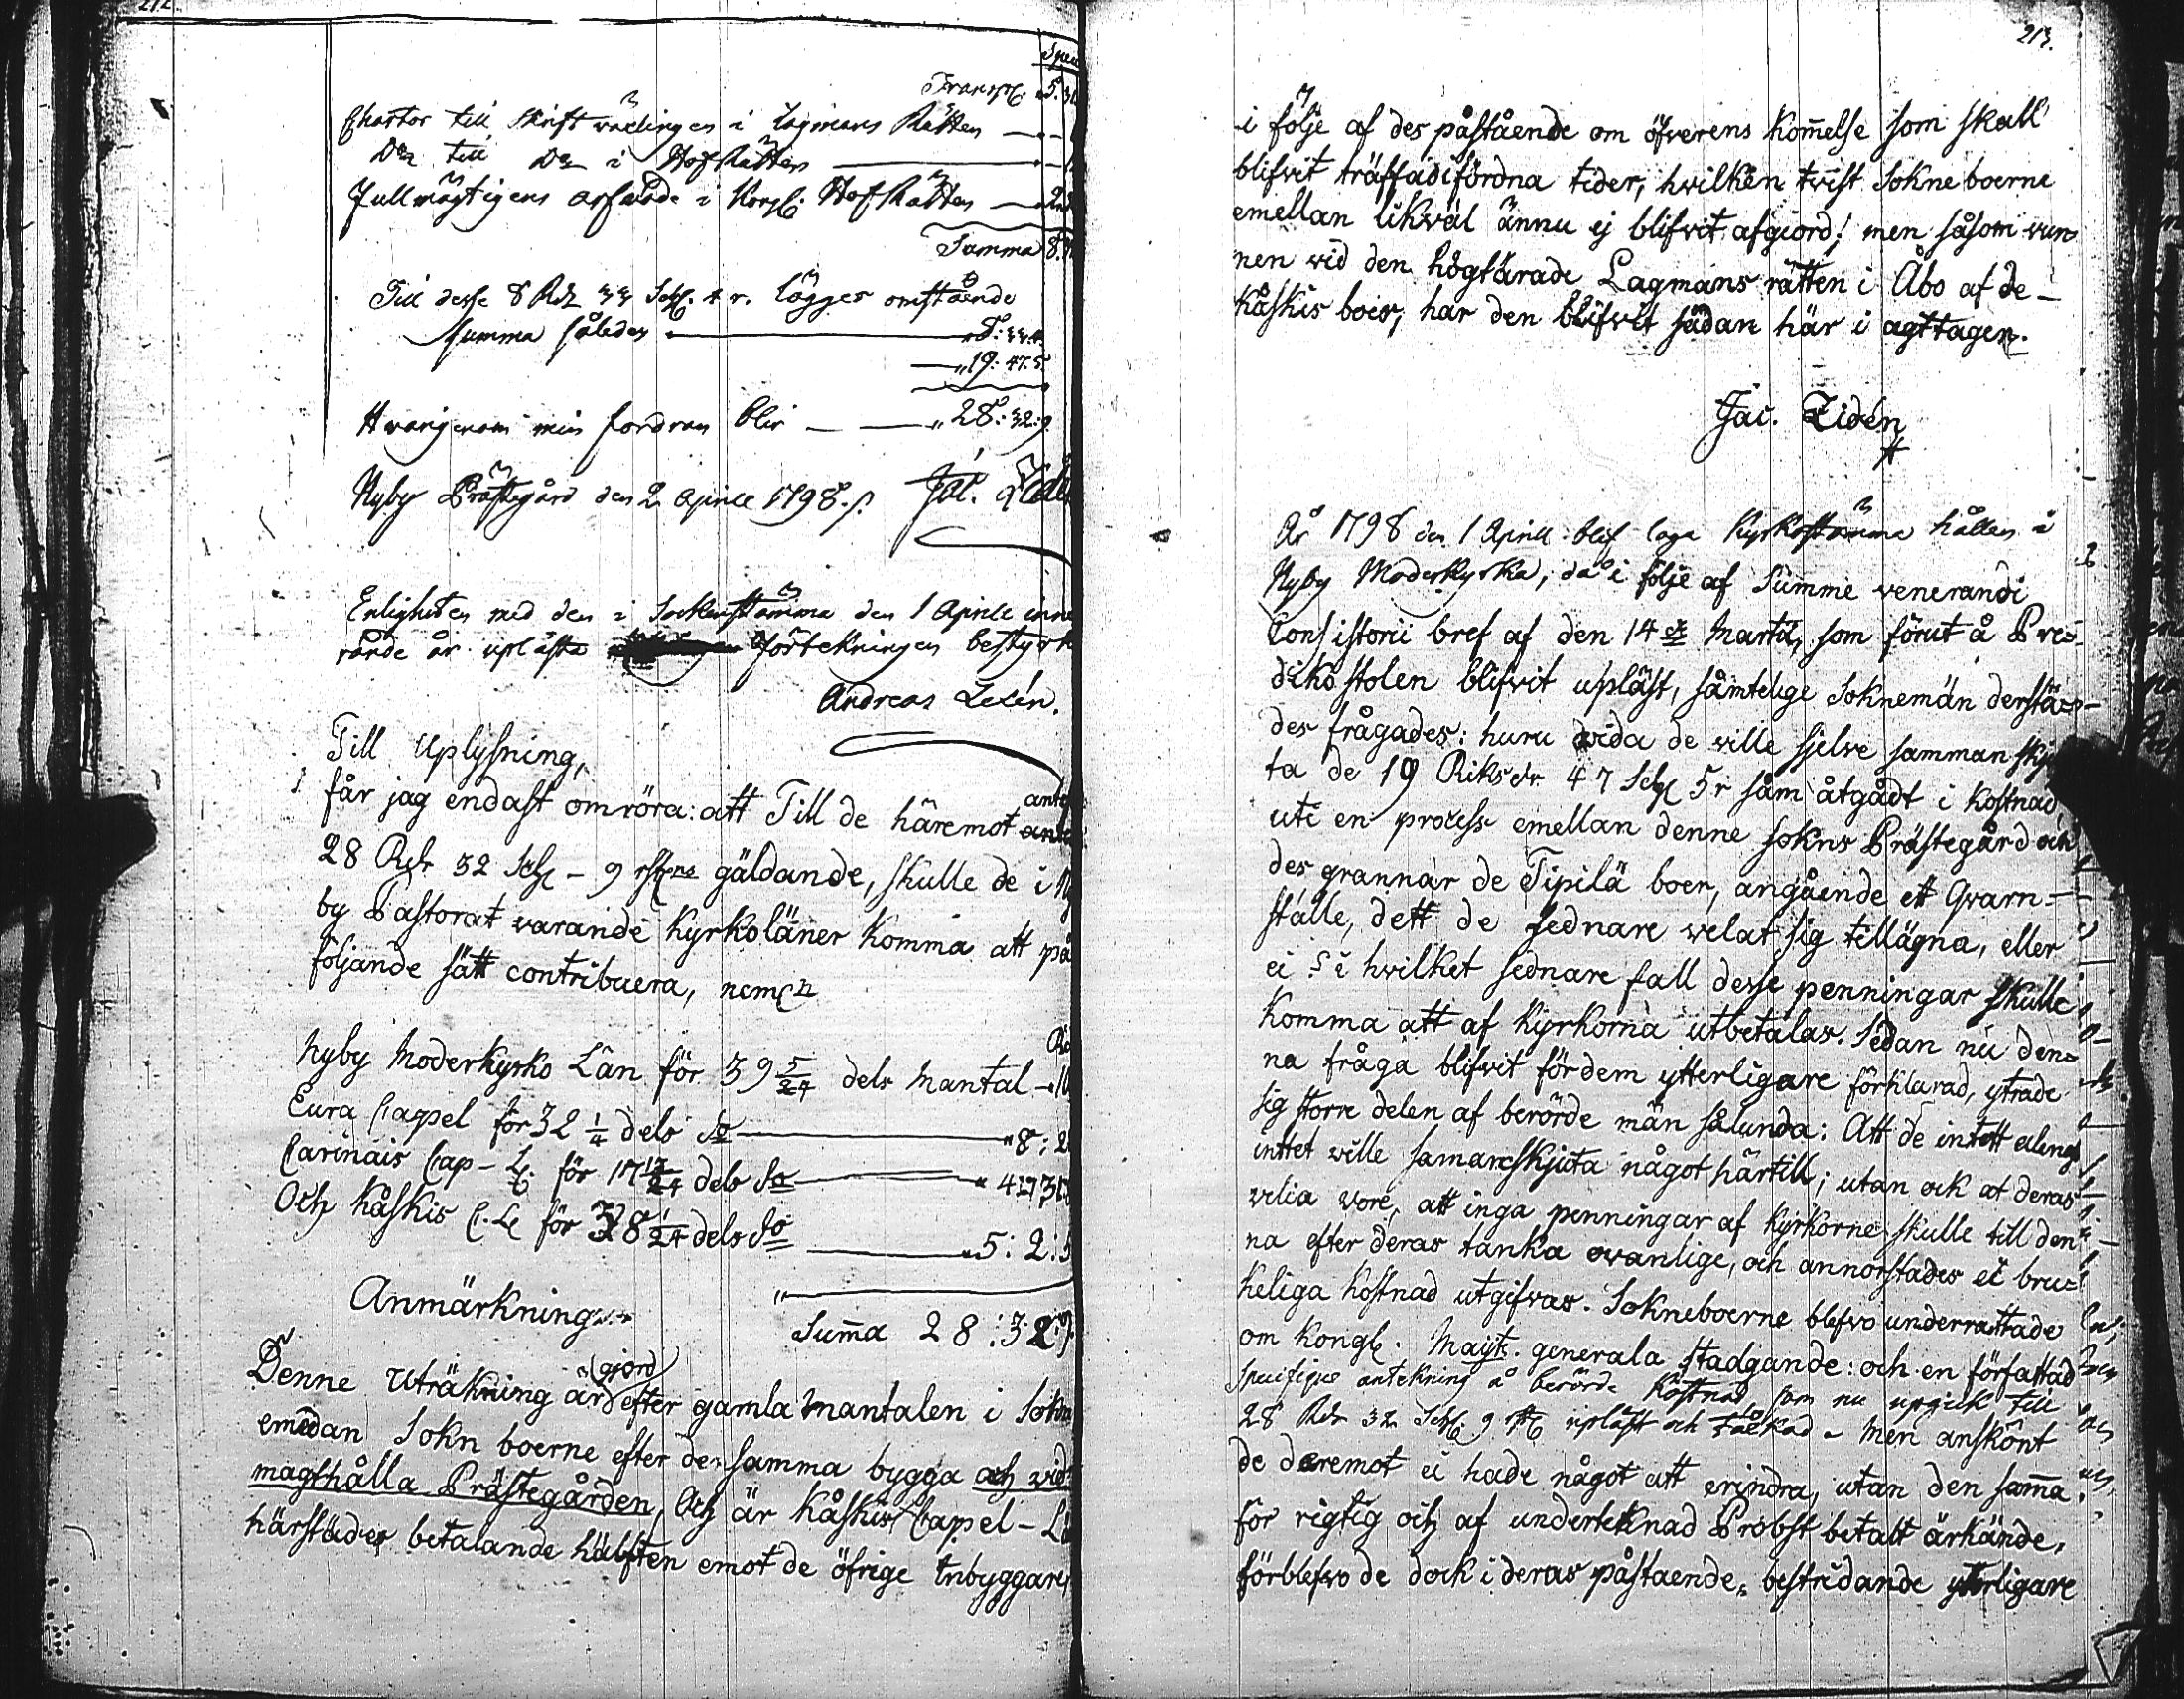 212.
Transp. 5.
Chartor till Skriftväxlingen i Lagmans Rätten
Do till Do i HofRätten
Fullmägtigens arfwode i Kongl. HofRätten
Summa 8.
Till desse 8 Rdr 33 Sch. 4 r. lägges omstående
summa således 8: 33.4.
19: 47.5.
Hwarigenom min fordran blir 28: 32: 9.
Nyby Prästegård den 2 Aprill 1798. Jac. Zidén
Enligheten med den i Sockenstämma den 1 Aprill inne
rande år upläste förtekningen bestyrk
Andreas Lexén.
Till Uplysning,
får jag endast omröra: att Till de häremot ante
28 Rdr 32 Sch - 9 rst:ns gäldande, skulle de i Ny
by Pastorat varande Kyrkoläner komma att på
följande sätt contribuera, neml:n
Nyby Moderkyrko Län för 39 5/24 dels Mantal
Eura Capel för 32 1/4 dels do 8: 2
Carinais Cap-L. för 17 17/24 dels do 4: 31
Och Kåskis C.L för 38 1/24 dels do 5: 2:
Anmärkning
Summa 28: 32: 9.
Denne Uträkning är gjord efter gamla Mantalen i Sokn
emedan Sokn boerne efter den samma bygga och vid
magthålla Prästegården, Och är Kåskis Capel-Lä
härstädes betalande hälften emot de öfrige Inbyggare
213.
i följe af des påstående om öfverens kommelse som skall
blifvit träffad i fördna tider, hvilken tvist Sokneboerne
emellan likväl ännu ej blifvit afgiord; men såsom vun
nen vid den högtärade Lagmans rätten i Åbo af de
Kåskis boer, har den blifvit sådan här i agttagen.
Jac. Zidén
År 1798 den 1 Aprill blef laga Kyrkostämma hållen i
Nyby Moderkyrka, då i följe af Summe venerandi
Consistorii bref af den 14de Martii, som förut å Pre-
dikostolen blifvit upläst, sämtelige Soknemän derstä-
des frågades: huru vida de ville sjelve samman skju
ta de 19 Riksdr 47 Sch 5 r såm åtgådt i kostnad
uti en process emellan denne sokns Prästegård och
des grannar de Tipilä boer, angående ett Qvarn-
ställe, dett de sednare velat sig tillägna, eller
ei? i hvilket sednare fall desse penningar skulle
komma att af Kyrkorna utbetalas. Sedan nu den-
na fråga blifvit för dem ytterligare förklarad, ytrade
sig större delen af berörde män sålunda: Att de intett aleng
inttet wille samanskjuta något härtill; utan ock at deras
vilia vore, att inga penningar af Kyrkorne skulle till den-
na efter deras tanka ovanlige, och annorstades ei bru-
keliga kostnad utgifvas. Sokneboerne blefvo underrattade
om Kongl. Mayts. generala stadgande: och en författad
specifique antekning å berörde kostnad som nu upgick till
28 Rdr 32 Sch. 9 rst upläst och tålkad. Men anskönt
de däremot ei hade något att erindra, utan den samma
för rigtig och af underteknad Probst betalt ärkände,
förblefvo de dock i deras påstaende, bestridande ytterligare